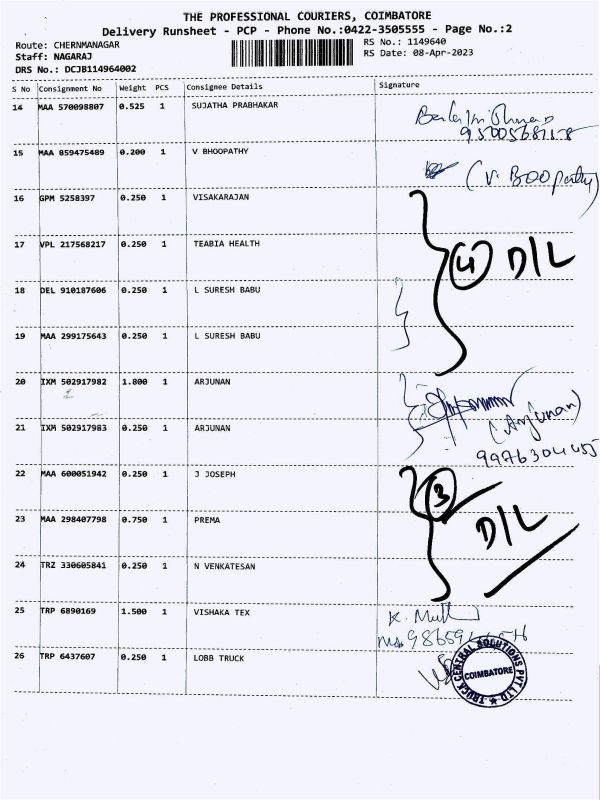 THE PROFESSIONAL COURIERS, COIMBATORE
Delivery Runsheet - PCP - Phone No.:0422-3505555 - Page No.:2
Route: CHERNMANAGAR
RS No.: 1149640
Staff: NAGARAJ
RS Date: 08-Apr-2023
DRS No.: DCJB114964002
S No Consignment No Weight PCS Consignee Details Signature
14 MAA 570098807 0.525 1 SUJATHA PRABHAKAR
15 MAA 859475489 0.200 1 V BHOOPATHY
(V. Boopathy)
16 GPM 5258397 0.250 1 VISAKARAJAN
17 VPL 217568217 0.250 1 TEABIA HEALTH
4 D/L
18 DEL 910187606 0.250 1 L SURESH BABU
19 MAA 299175643 0.250 1 L SURESH BABU
20 IXM 502917982 1.800 1 ARJUNAN
21 IXM 502917983 0.250 1 ARJUNAN
(Arjunan)
9976304455
22 MAA 600051942 0.250 1 J JOSEPH
3
23 MAA 298407798 0.750 1 PREMA
D/L
24 TRZ 330605841 0.250 1 N VENKATESAN
25 TRP 6890169 1.500 1 VISHAKA TEX
26 TRP 6437607 0.250 1 LOBB TRUCK
TRUCK CENTRAL SOLUTIONS PVT LTD
COIMBATORE